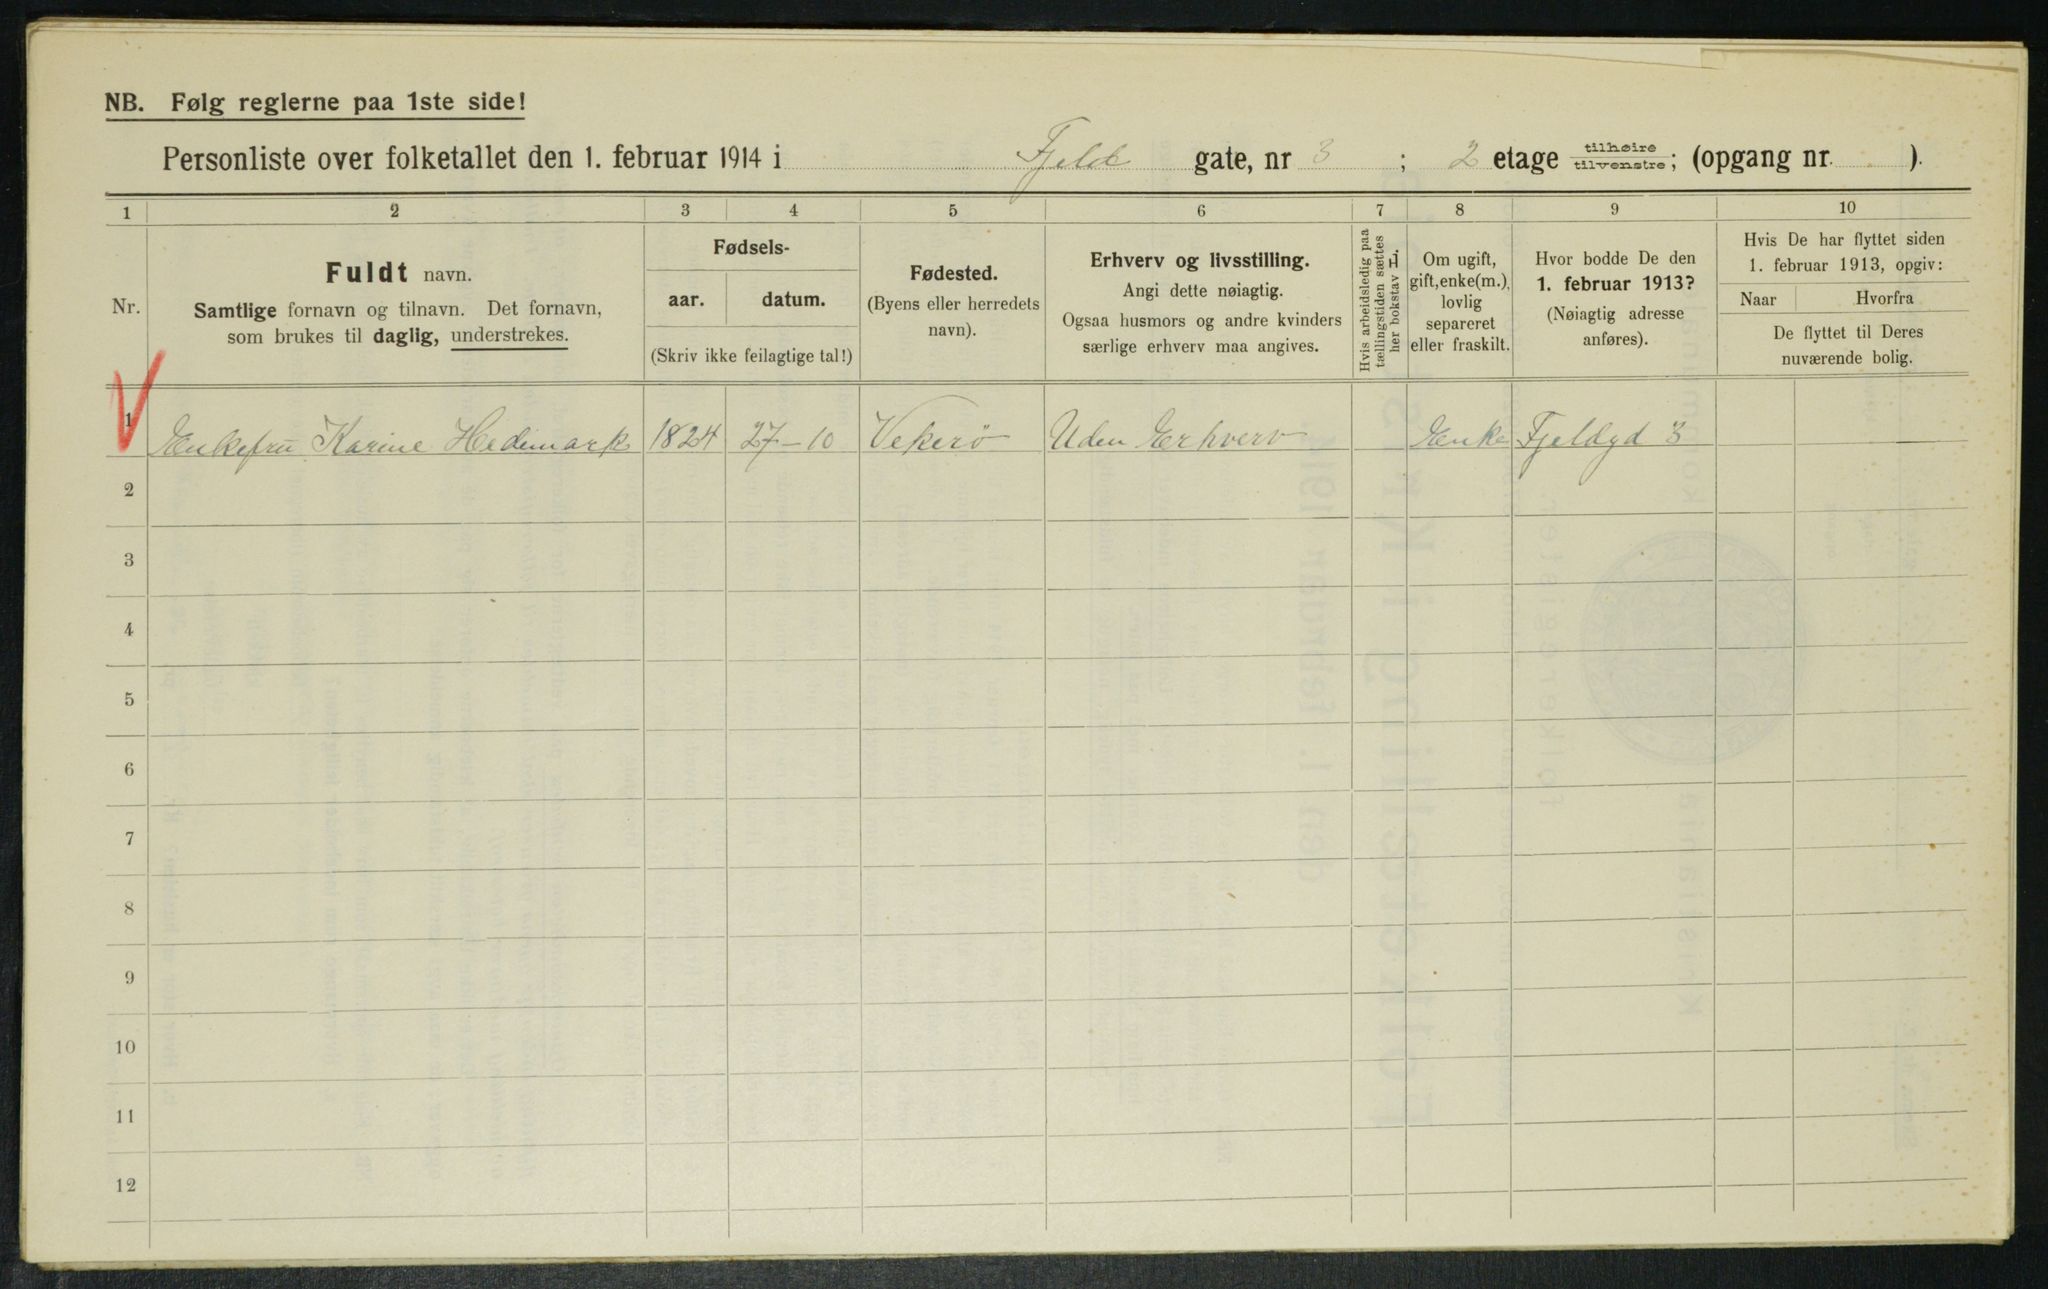 NB. Følg reglerne paa 1ste side!
Personliste over folketallet den 1. februar 1914 i Fjeld gate, nr 3 ; 2 etage tilhøire tilvenstre; (opgang nr. ).
1 2 3 4 5 6 7 8 9 10
Nr.
Fuldt navn.
Samtlige fornavn og tilnavn. Det fornavn,
som brukes til daglig, understrekes.
Fødsels-
aar. datum.
(Skriv ikke feilagtige tal!)
Fødested.
(Byens eller herredets
navn).
Erhverv og livsstilling.
Angi dette nøiagtig.
Ogsaa husmors og andre kvinders
særlige erhverv maa angives.
Hvis arbeidsledig paa
tællingstiden sættes
her bokstav L
Om ugift,
gift, enke(m.),
lovlig
separeret
eller fraskilt.
Hvor bodde De den
1. februar 1913?
(Nøiagtig adresse
anføres).
Hvis De har flyttet siden
1. februar 1913, opgiv:
Naar Hvorfra
De flyttet til Deres
nuværende bolig.
1 Enkefru Karine Hedemark 1824 27-10 Vekerö Uden Erhverv Enke Fjeldgd 3
2
3
4
5
6
7
8
9
10
11
12